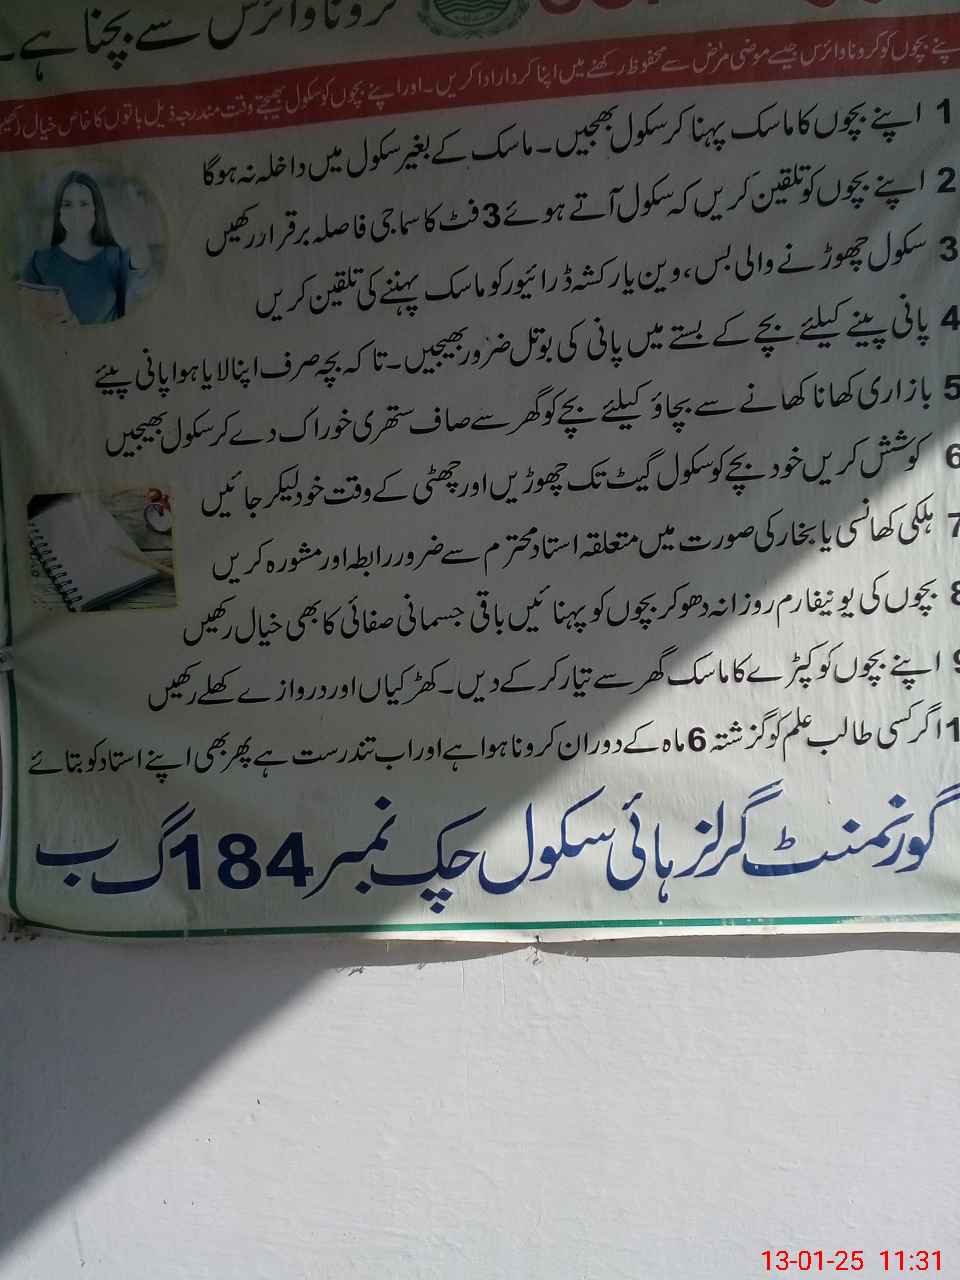 کرونا وائرس سے بچنا ہے۔
اپنے بچوں کو کرونا وائرس جیسے موضی مرض سے محفوظ رکھنے میں اپنا کردار ادا کریں۔ اور اپنے بچوں کو سکول بھیجتے وقت مندرجہ ذیل باتوں کا خاص خیال رکھیں
1 اپنے بچوں کا ماسک پہنا کر سکول بھجیں۔ ماسک کے بغیر سکول میں داخلہ نہ ہوگا
2 اپنے بچوں کو تلقین کریں کہ سکول آتے ہوئے 3 فٹ کا سماجی فاصلہ برقرار رکھیں
3 سکول چھوڑنے والی بس، وین یا رکشہ ڈرائیور کو ماسک پہننے کی تلقین کریں
4 پانی پینے کیلئے بچے کے بستے میں پانی کی بوتل ضرور بھیجیں۔ تاکہ بچہ صرف اپنا لایا ہوا پانی پیئے
5 بازاری کھانا کھانے سے بچاؤ کیلئے بچے کو گھر سے صاف ستھری خوراک دے کر سکول بھیجیں
6 کوشش کریں خود بچے کو سکول گیٹ تک چھوڑیں اور چھٹی کے وقت خود لیکر جائیں
7 ہلکی کھانسی یا بخار کی صورت میں متعلقہ استاد محترم سے ضرور رابطہ اور مشورہ کریں
8 بچوں کی یونیفارم روزانہ دھو کر بچوں کو پہنائیں باقی جسمانی صفائی کا بھی خیال رکھیں
9 اپنے بچوں کو کپڑے کا ماسک گھر سے تیار کر کے دیں۔ کھڑکیاں اور دروازے کھلے رکھیں
1 اگر کسی طالب علم کو گزشتہ 6 ماہ کے دوران کرونا ہوا ہے اور اب تندرست ہے پھر بھی اپنے استاد کو بتائے
گورنمنٹ گرلز ہائی سکول چک نمبر 184 گ ب
13-01-25 11:31